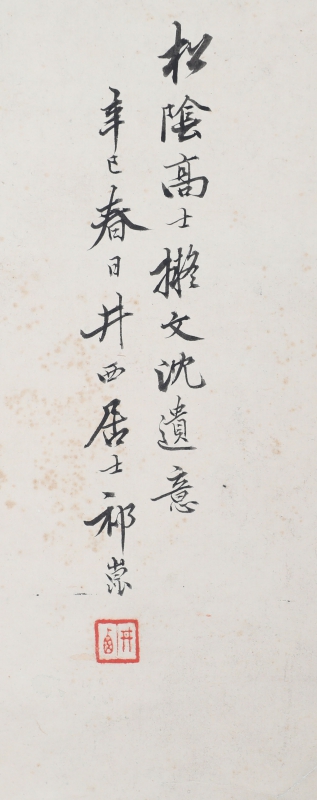 松陰高士擬文沈遺意
辛巳春日井西居士祁崑
井西